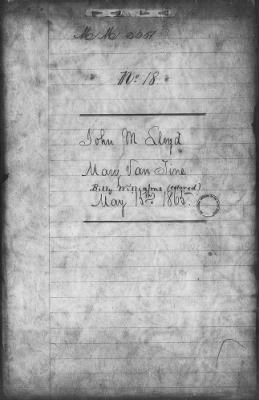 M M 2251
No 18.
John M Lloyd
Mary Van Tine
Billy Williams (colored)
May 15th 1865.